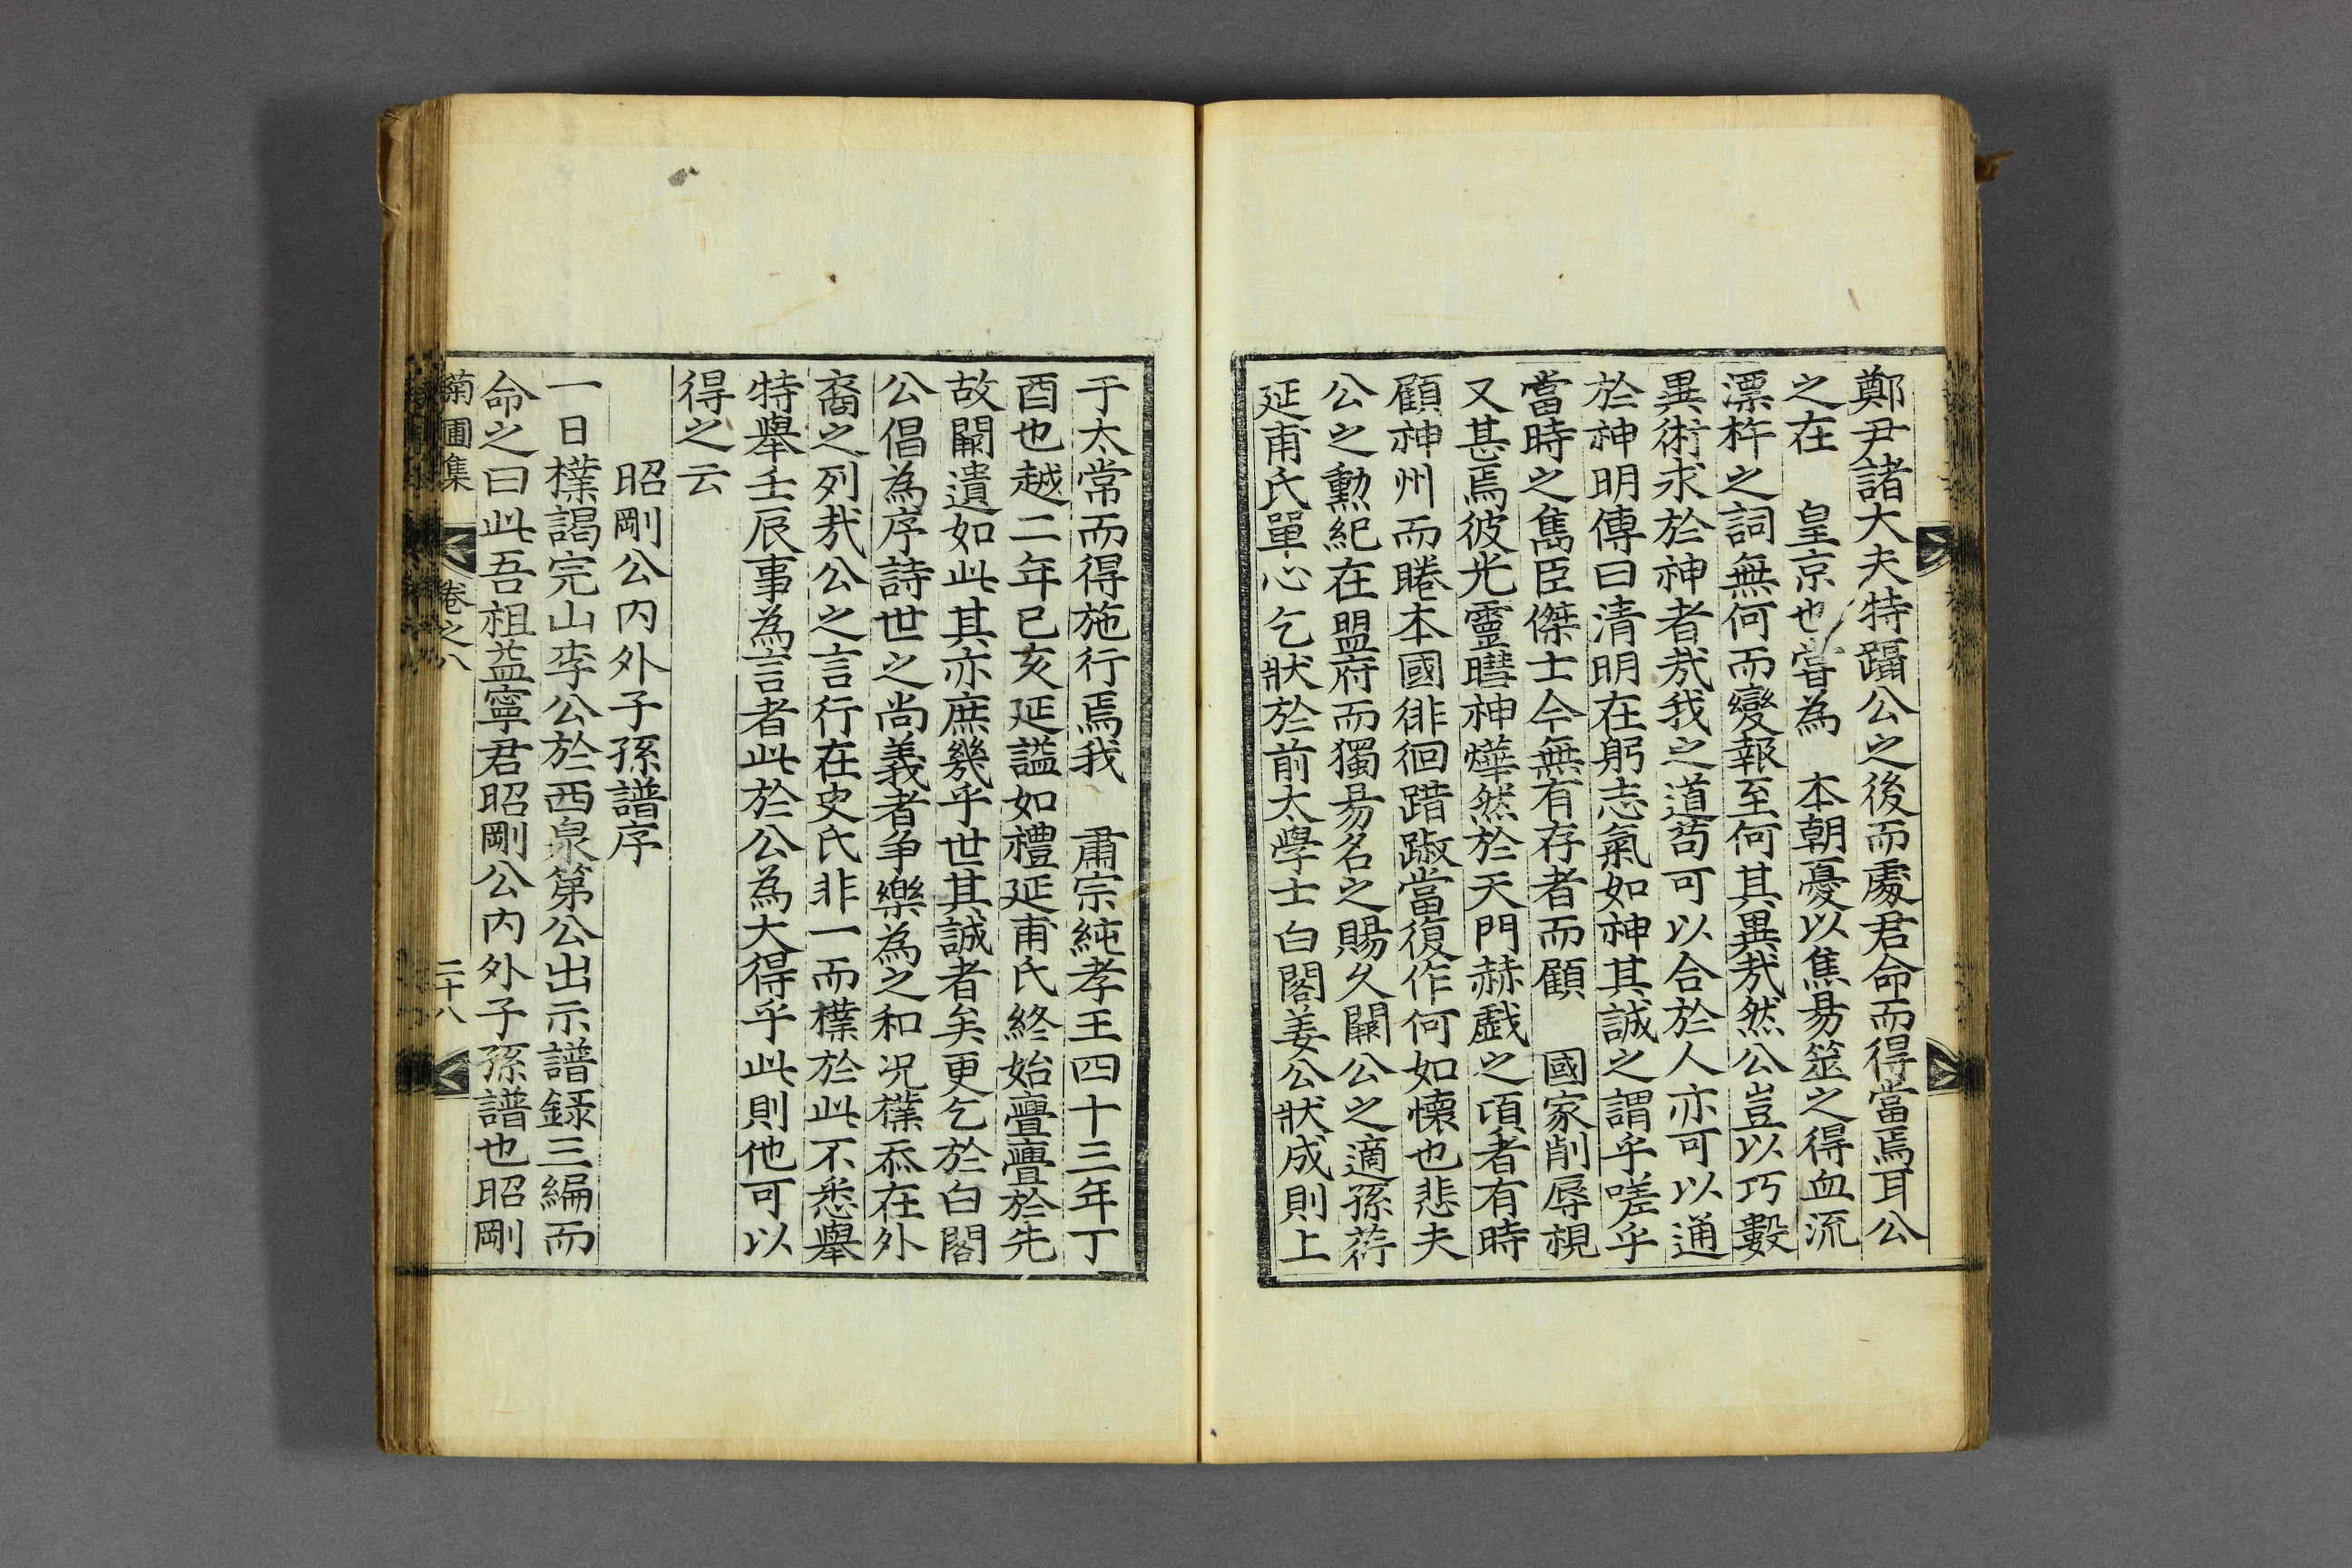 鄭尹諸大夫特躡公之後而處君命而得當焉耳公
之在　皇京也嘗為　本朝憂以焦易筮之得血流
漂杵之詞無何而變報至何其異㢤然公豈以巧數
異術求於神者㢤我之道苟可以合於人亦可以通
於神明傳曰清明在躬志氣如神其誠之謂乎嗟乎
當時之雋臣傑士今無有存者而顧　國家削辱視
又甚焉彼光靈曄神燁然於天門赫戱之頃者有時
顧神州而睠本國徘徊踖踧當復作何如懷也悲夫
公之勳紀在盟府而獨昜名之賜久闕公之適孫荇
延甫氏單心乞狀於前太學士白閣姜公狀成則上
于太常而得施行焉我　肅宗純孝王四十三年丁
酉也越二年已亥延謚如禮延甫氏終始亹亹於先
故闕遺如此其亦庶幾乎世其誠者矣更乞於白閣
公倡為序詩世之尚義者爭樂為之和况樸忝在外
裔之列㢤公之言行在史氏非一而樸於此不悉舉
特舉壬辰事為言者此於公為大得乎此則他可以
得之云
昭剛公内外子孫譜序
一日樸謁完山李公於西泉第公出示譜錄三編而
命之曰此吾祖益寧君昭剛公内外子孫譜也昭剛
菊圃集　卷之八　二十八